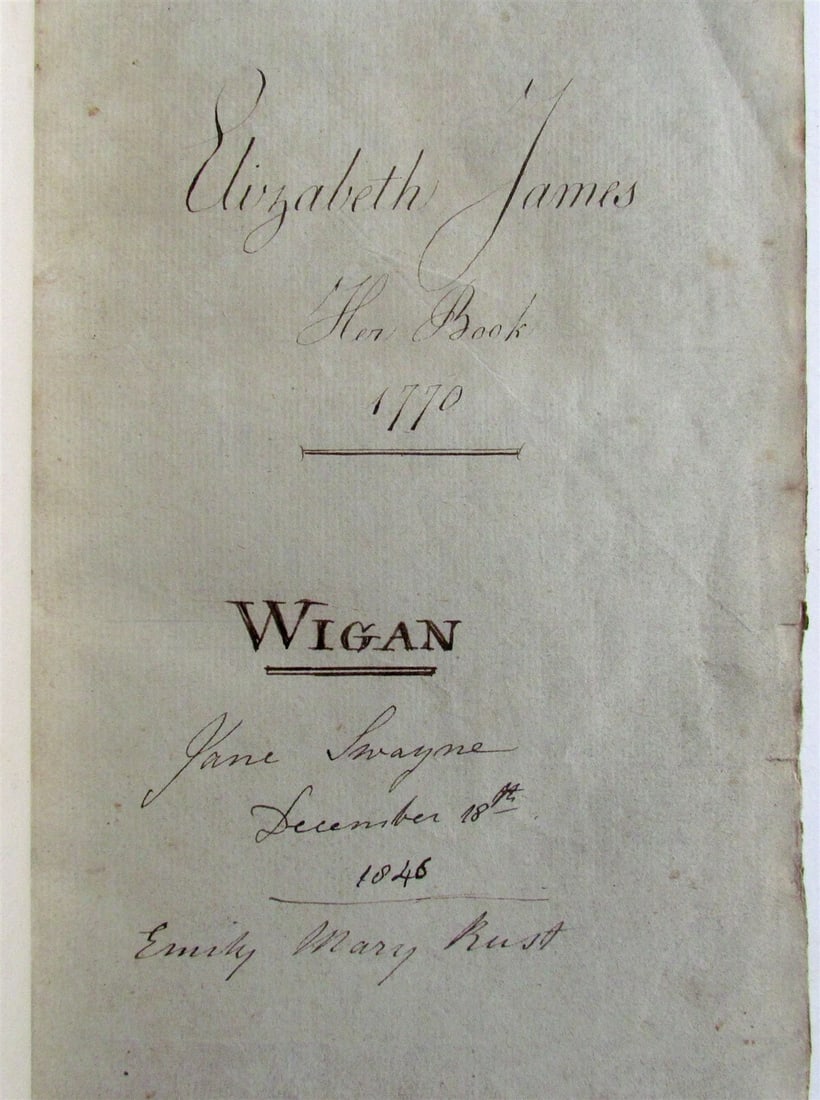 Elizabeth James
Her Book
1770
WIGAN
Jane Swayne
December 18th
1846
Emily Mary Rust